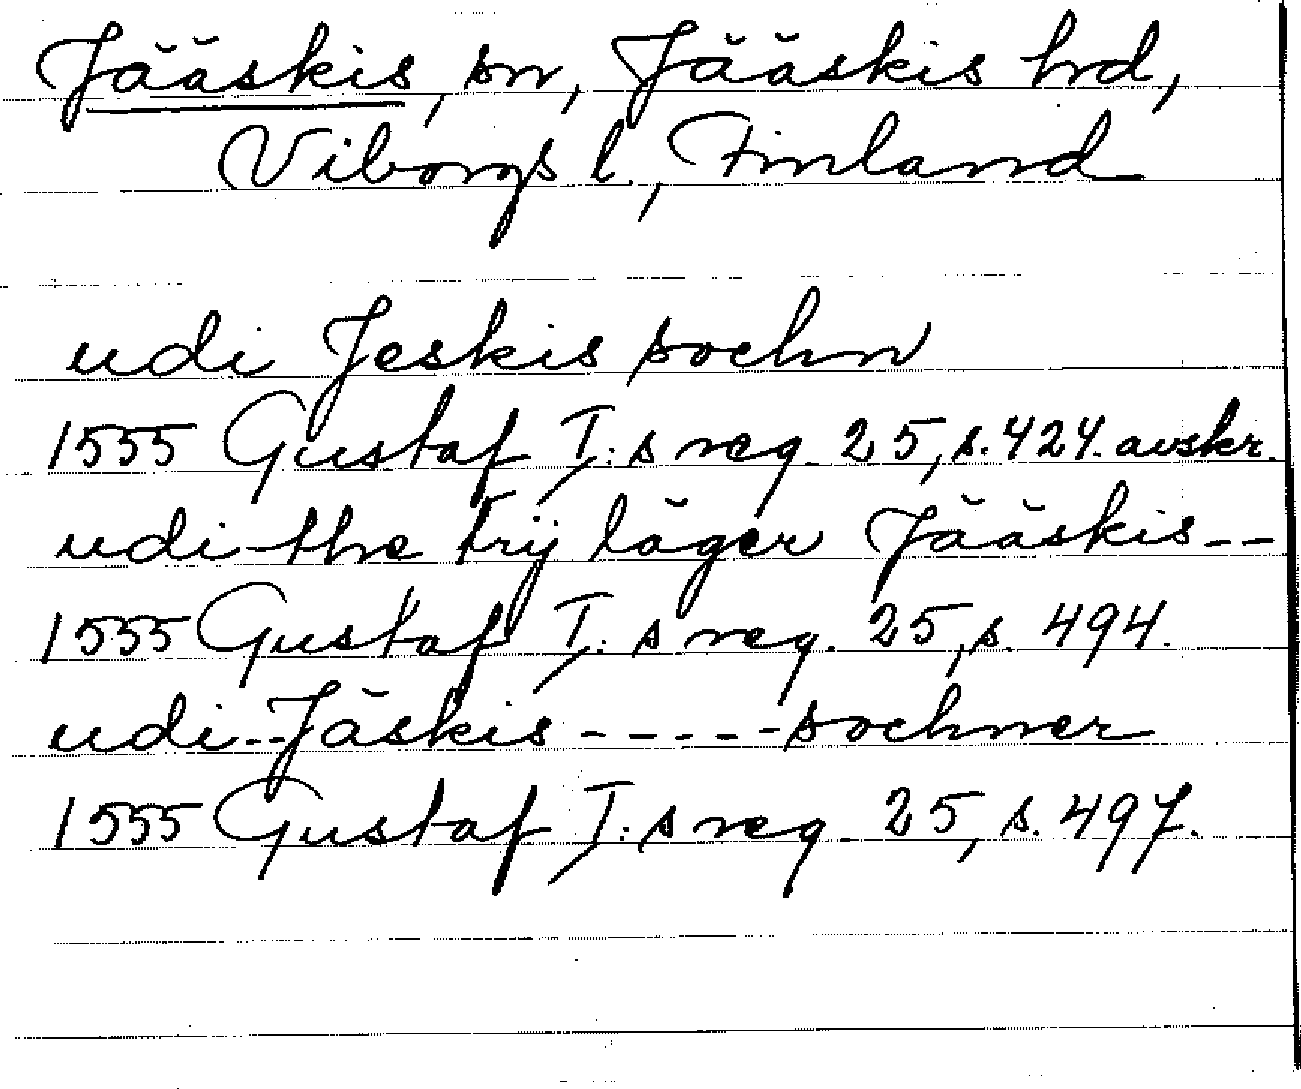 Jääskis, sn, Jääskis hrd,
Viborgs l., Finland
udi Jeskis sochn
1555 Gustaf I:s reg. 25, s. 424. avskr.
udi the try läger Jääskis--
1555 Gustaf I:s reg. 25, s. 494.
udi--Jäskis-----sochner
1555 Gustaf I:s reg. 25, s. 497.